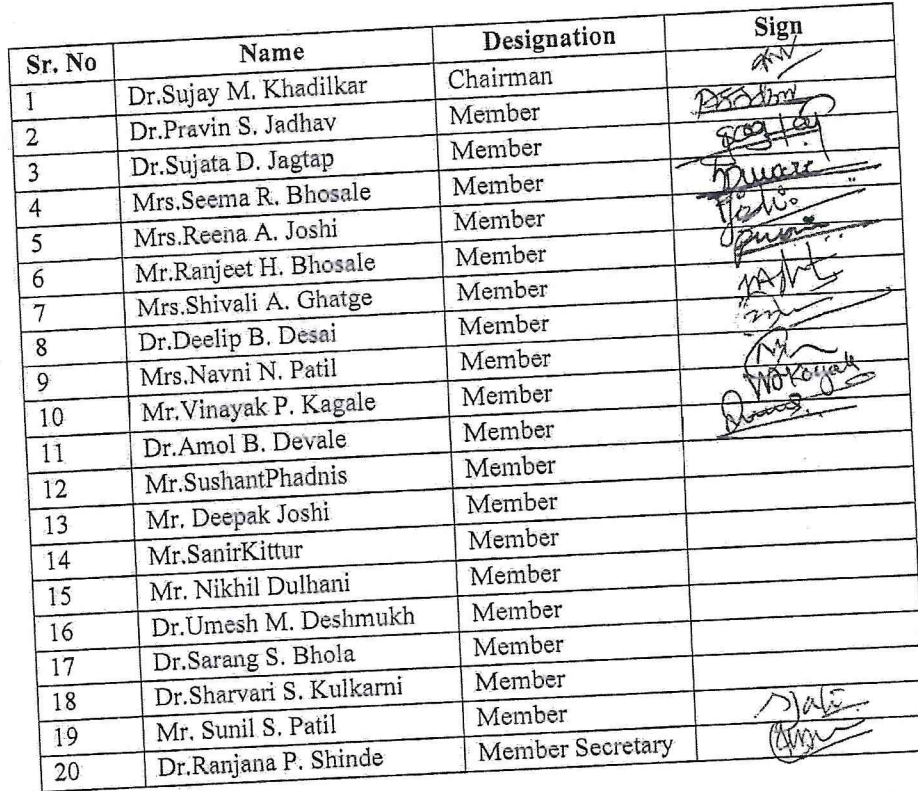 Sr. No Name Designation Sign
1 Dr.Sujay M. Khadilkar Chairman
2 Dr.Pravin S. Jadhav Member
3 Dr.Sujata D. Jagtap Member
4 Mrs.Seema R. Bhosale Member
5 Mrs.Reena A. Joshi Member
6 Mr.Ranjeet H. Bhosale Member
7 Mrs.Shivali A. Ghatge Member
8 Dr.Deelip B. Desai Member
9 Mrs.Navni N. Patil Member
10 Mr.Vinayak P. Kagale Member
11 Dr.Amol B. Devale Member
12 Mr.SushantPhadnis Member
13 Mr. Deepak Joshi Member
14 Mr.SanirKittur Member
15 Mr. Nikhil Dulhani Member
16 Dr.Umesh M. Deshmukh Member
17 Dr.Sarang S. Bhola Member
18 Dr.Sharvari S. Kulkarni Member
19 Mr. Sunil S. Patil Member
20 Dr.Ranjana P. Shinde Member Secretary